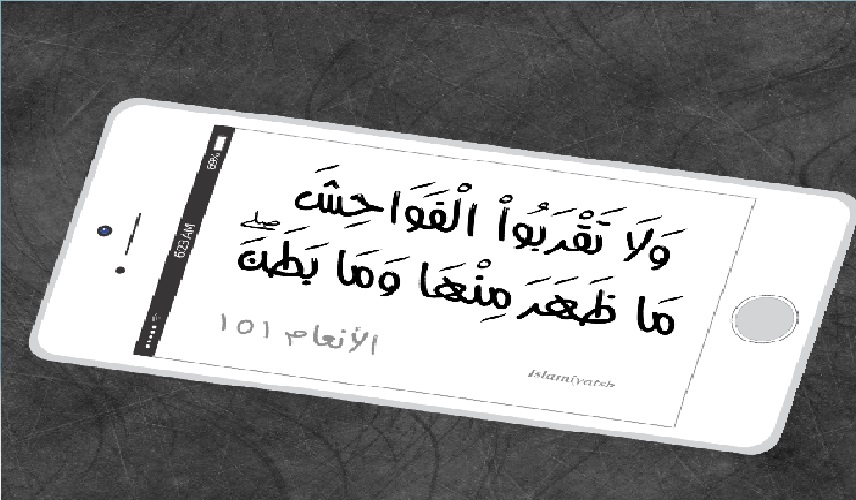 وَلَا تَقْرَبُواْ الْفَوَاحِشَ
مَا ظَهَرَ مِنْهَا وَمَا بَطَنَ ۖ
الأنعام ١٥١
islamiyateh
69%